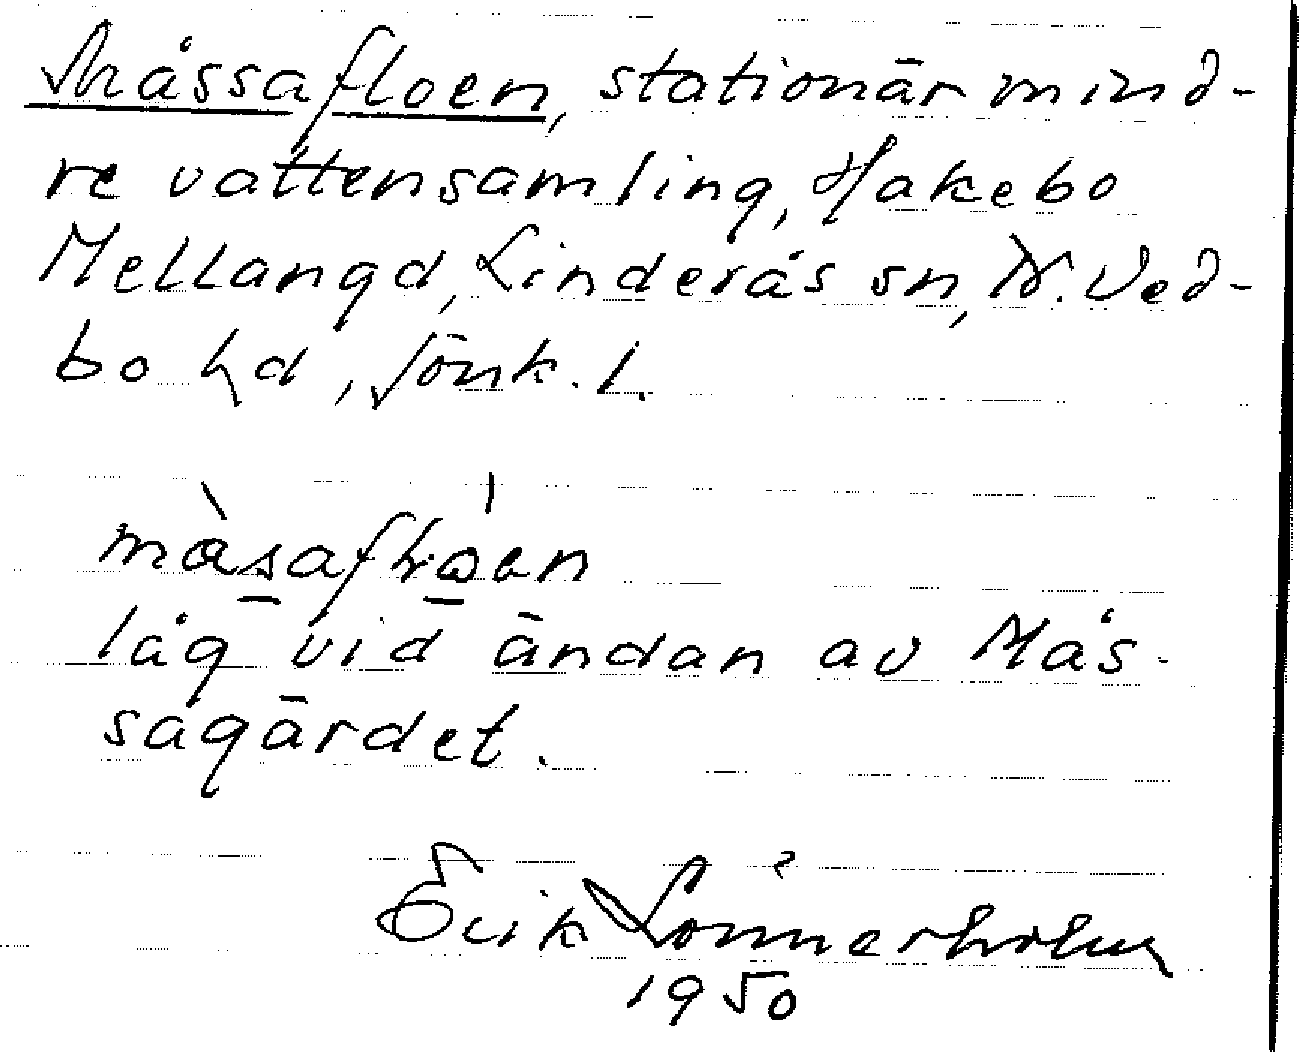 Måssafloen, stationär mind-
re vattensamling, Hakebo
Mellangd, Linderås sn, N. Ved-
bo hd, Jönk. l.
låg vid ändan av Mås-
sagärdet.
Erik
1950